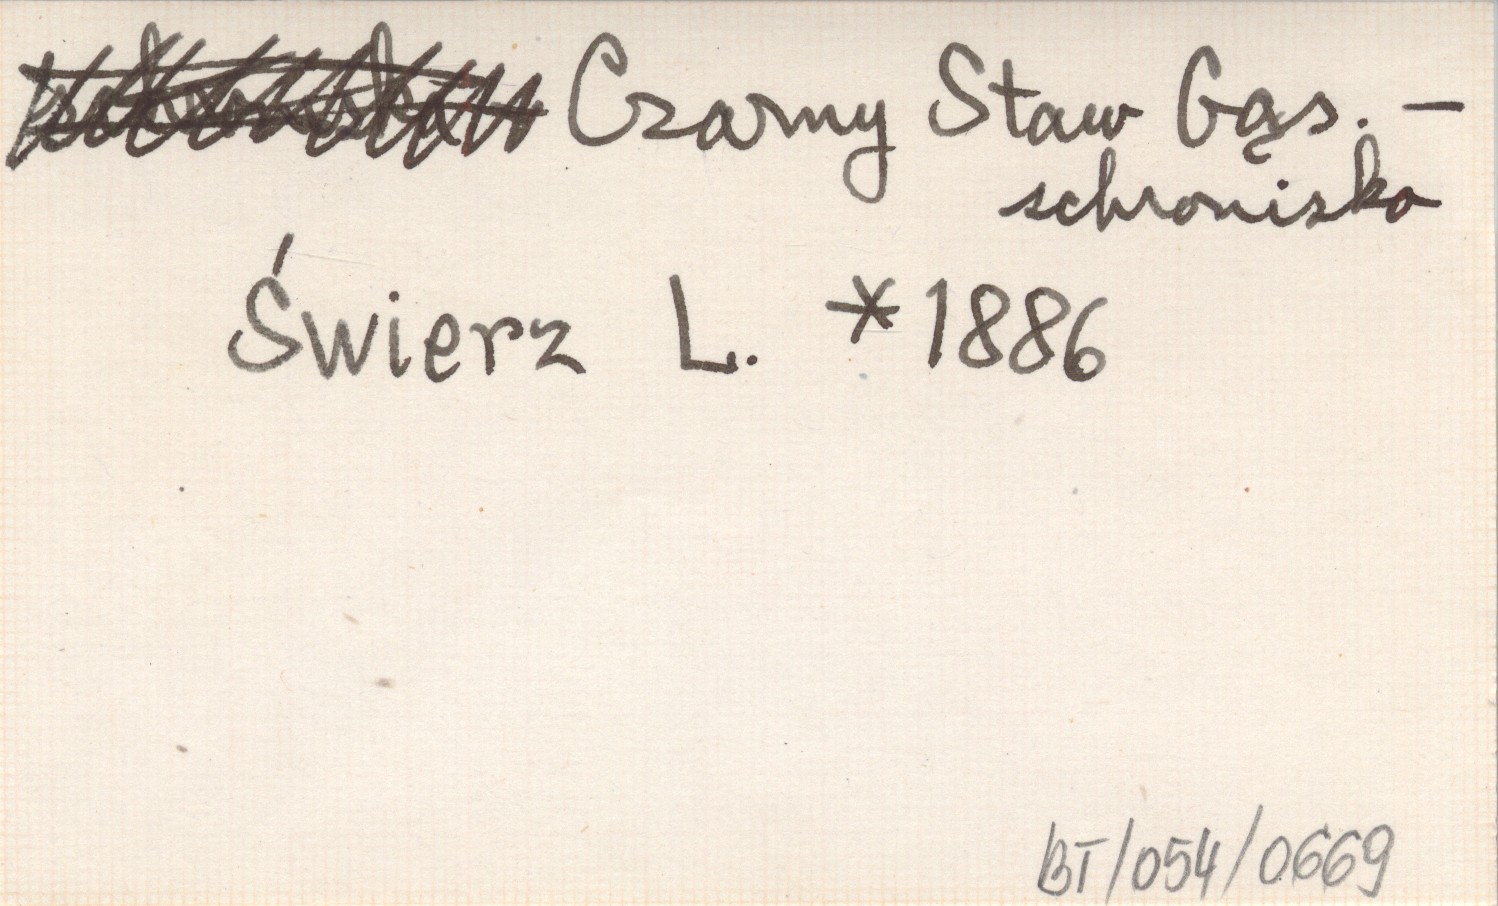 Czarny Staw Gąs. –
schronisko
Świerz L. *1886
BT/054/0669